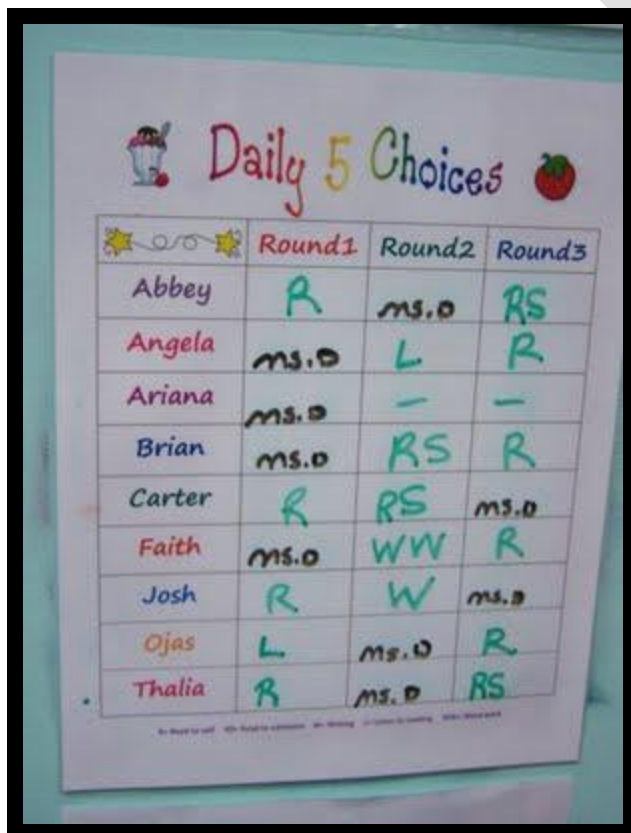 Daily 5 Choices
Round1 Round2 Round3
Abbey R ms.D RS
Angela ms.D L R
Ariana ms.D — —
Brian ms.D RS R
Carter R RS ms.D
Faith ms.D WW R
Josh R W ms.D
Ojas L ms.D R
Thalia R ms.D RS